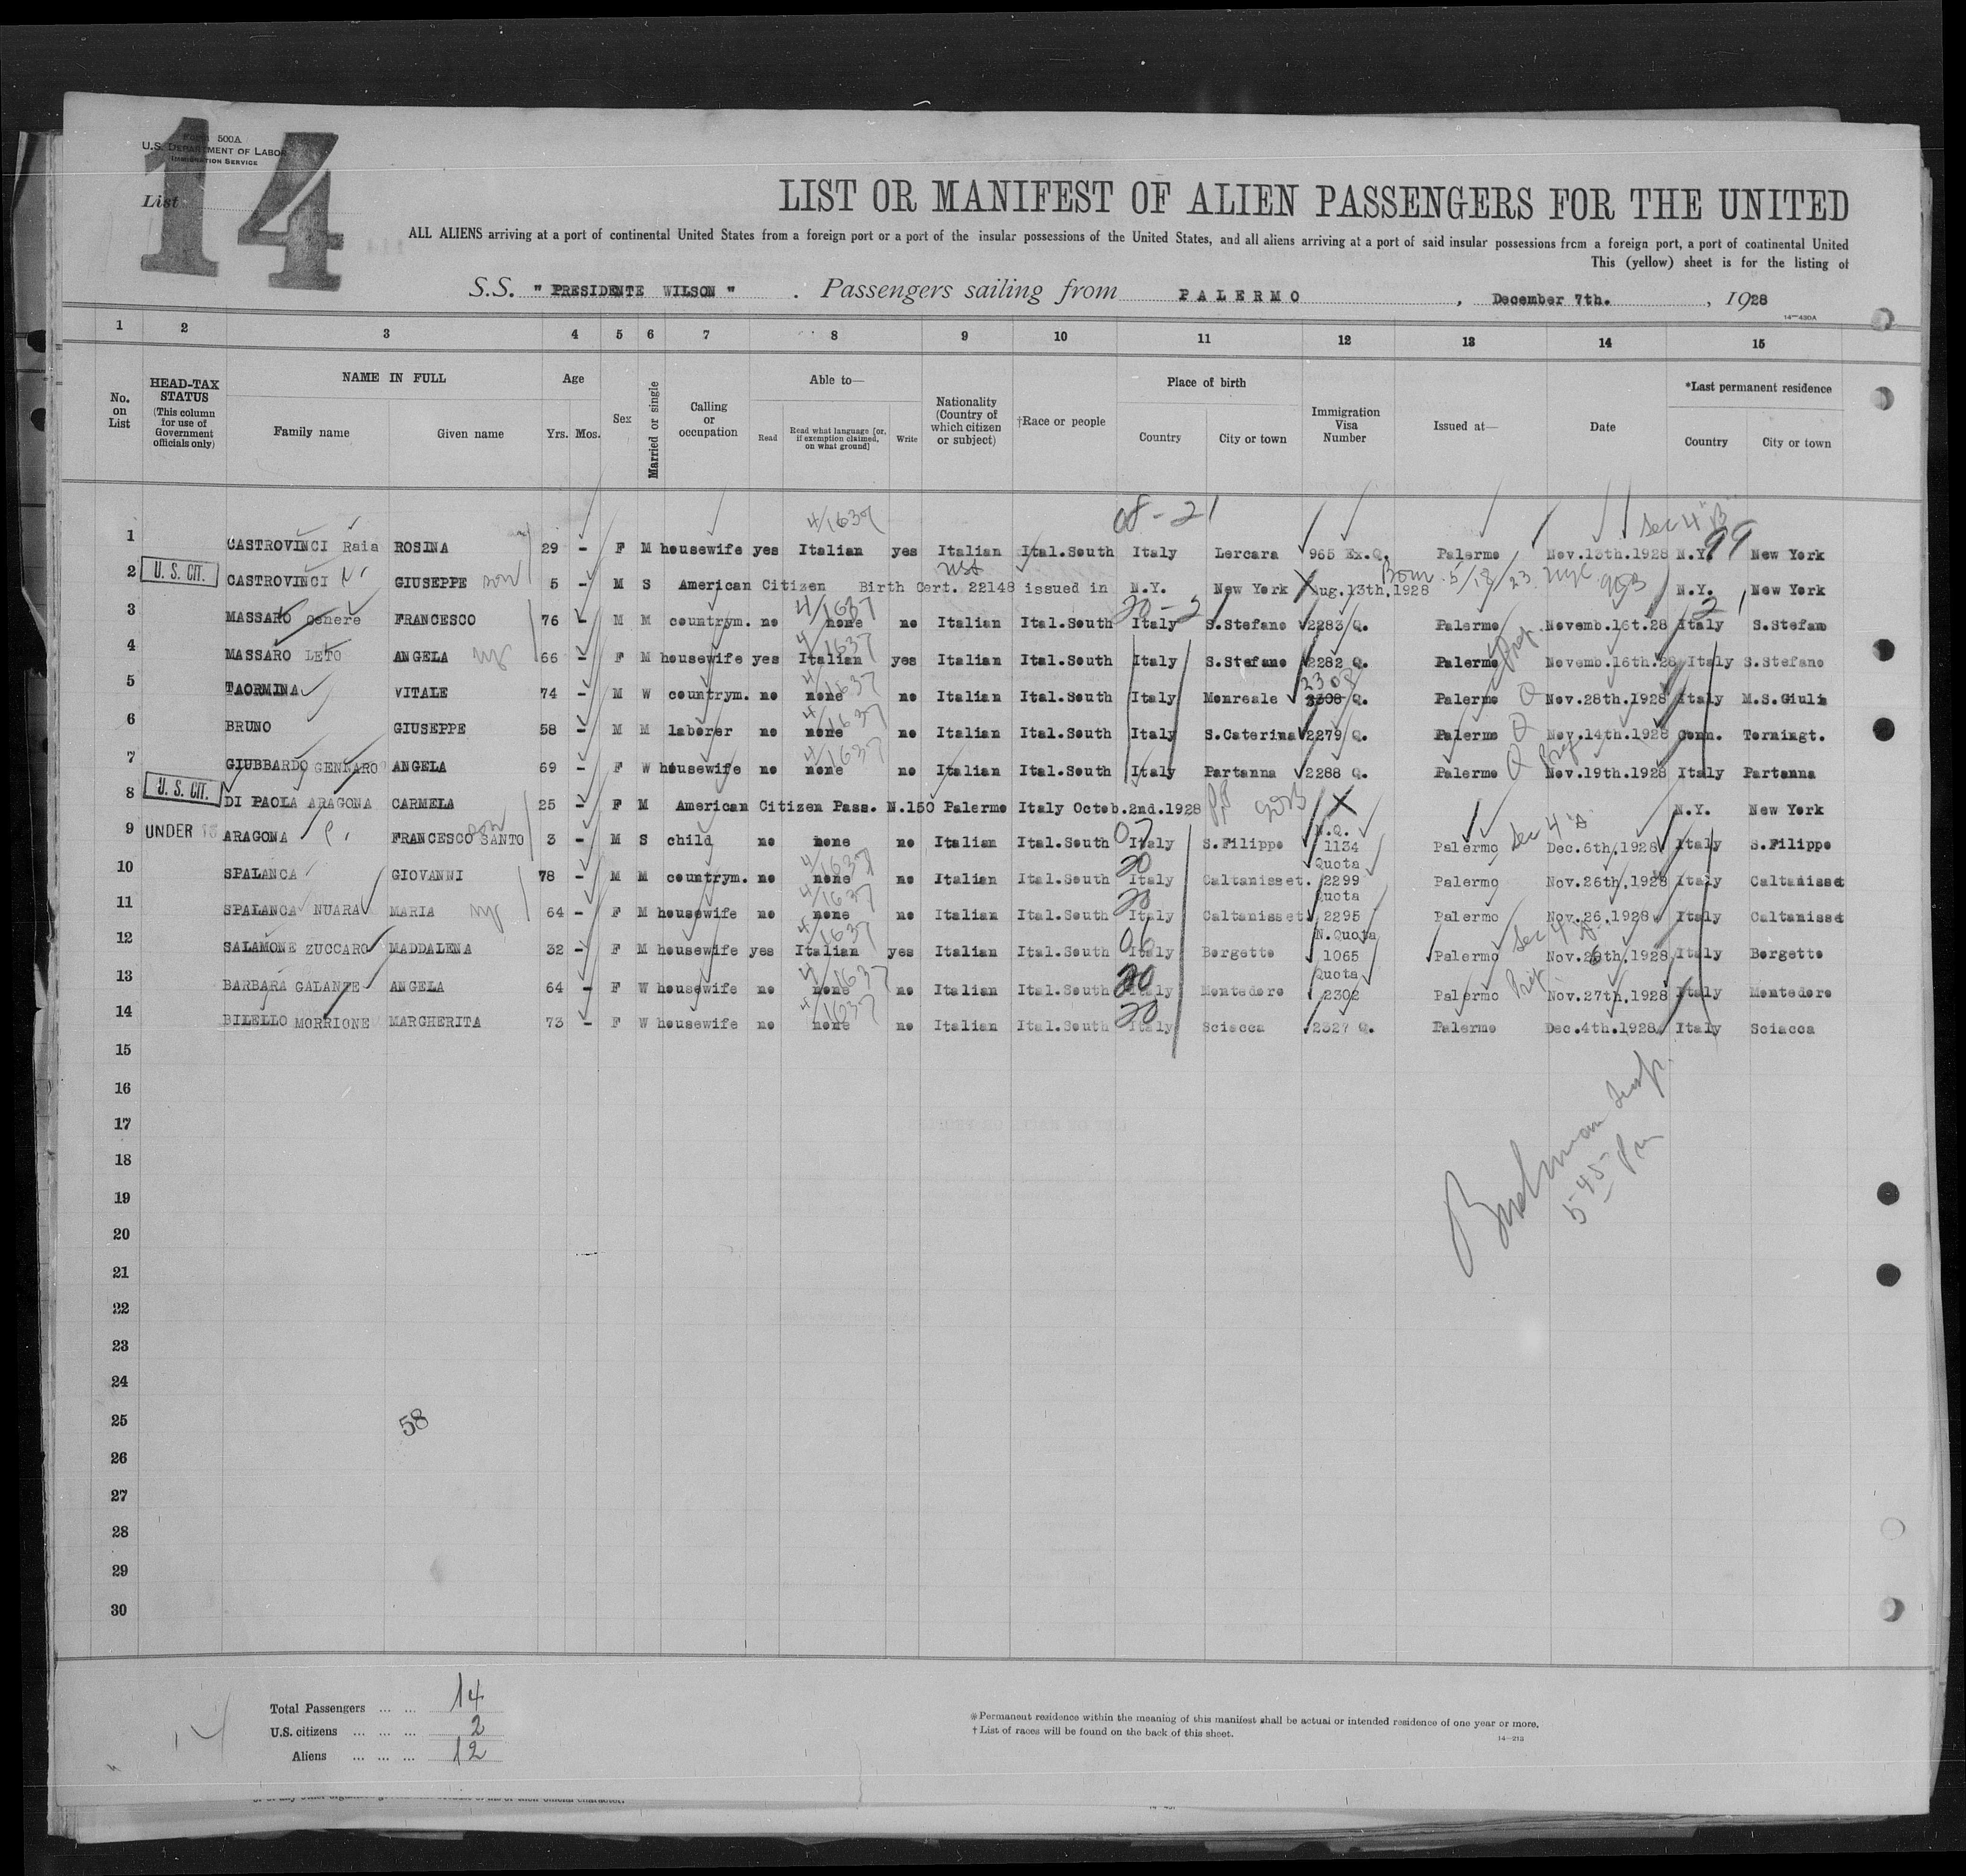 14
Form 500A
U.S. DEPARTMENT OF LABOR
IMMIGRATION SERVICE
List
LIST OR MANIFEST OF ALIEN PASSENGERS FOR THE UNITED
ALL ALIENS arriving at a port of continental United States from a foreign port or a port of the insular possessions of the United States, and all aliens arriving at a port of said insular possessions from a foreign port, a port of continental United
This (yellow) sheet is for the listing of
S.S. " PRESIDENTE WILSON " . Passengers sailing from PALERMO , December 7th. , 1928
14—430A
1 2 3 4 5 6 7 8 9 10 11 12 13 14 15
No. on List
HEAD-TAX STATUS (This column for use of Government officials only)
NAME IN FULL Family name Given name
Age Yrs. Mos.
Sex
Married or single
Calling or occupation
Able to— Read Read what language [or, if exemption claimed, on what ground] Write
Nationality (Country of which citizen or subject)
†Race or people
Place of birth Country City or town
Immigration Visa Number
Issued at—
Date
*Last permanent residence Country City or town
4/1637 08-21 Sec 4 "B" 99
1 CASTROVINCI Raia ROSINA 29 - F M housewife yes Italian yes Italian Ital.South Italy Lercara 965 Ex.Q. Palermo Nov.13th.1928 N.Y. New York
USA Born 5/18/23 NYC
2 U. S. CIT. CASTROVINCI GIUSEPPE son 5 - M S American Citizen Birth Cert. 22148 issued in N.Y. New York Aug.13th,1928 N.Y. New York
4/1637 20-2
3 MASSARO Genere FRANCESCO 76 - M M countrym. no none no Italian Ital.South Italy S.Stefano 2283 Q. Palermo Novemb.16t.28 Italy S.Stefano
4/1637
4 MASSARO LETO ANGELA 66 - F M housewife yes Italian yes Italian Ital.South Italy S.Stefano 2282 Q. Palermo Novemb.16th.28 Italy S.Stefano
4/1637 2308
5 TAORMINA VITALE 74 - M W countrym. no none no Italian Ital.South Italy Monreale 3308 Q. Palermo Q Nov.28th.1928 Italy M.S.Giuli
4/1637
6 BRUNO GIUSEPPE 58 - M M laborer no none no Italian Ital.South Italy S.Caterina 2279 Q. Palermo Q Nov.14th.1928 Conn. Torningt.
4/1637
7 GIUBBARDO GENNARO ANGELA 69 - F W housewife no none no Italian Ital.South Italy Partanna 2288 Q. Palermo Q Nov.19th.1928 Italy Partanna
8 U. S. CIT. DI PAOLA ARAGONA CARMELA 25 - F M American Citizen Pass. N.150 Palermo Italy Octob.2nd.1928 N.Y. New York
9 UNDER 16 ARAGONA FRANCESCO SANTO son 3 - M S child no none no Italian Ital.South 07 Italy S.Filippo N.Q. 1134 Palermo Dec.6th,1928 Italy S.Filippo
4/1637
10 SPALANCA GIOVANNI 78 - M M countrym. no none no Italian Ital.South 20 Italy Caltanisset. Quota 2299 Palermo Nov.26th,1928 Italy Caltanisset
4/1637
11 SPALANCA NUARA MARIA 64 - F M housewife no none no Italian Ital.South 20 Italy Caltanisset Quota 2295 Palermo Nov.26,1928 Italy Caltanisset
4/1637
12 SALAMONE ZUCCARO MADDALENA 32 - F M housewife yes Italian yes Italian Ital.South 06 Italy Borgetto N.Quota 1065 Palermo Nov.26th,1928 Italy Borgetto
4/1637
13 BARBARA GALANTE ANGELA 64 - F W housewife no none no Italian Ital.South 20 Italy Montedoro Quota 2302 Palermo Nov.27th,1928 Italy Montedoro
4/1637
14 BILELLO MORRIONE MARGHERITA 73 - F W housewife no none no Italian Ital.South 20 Italy Sciacca 2327 Q. Palermo Dec.4th.1928 Italy Sciacca
15
16
17
18
19
20
21
22
23
24
25
26
27
28
29
30
Bushman Insp.
5-45 Pm
58
Total Passengers 14
U.S. citizens 2
Aliens 12
* Permanent residence within the meaning of this manifest shall be actual or intended residence of one year or more.
† List of races will be found on the back of this sheet.
14—213